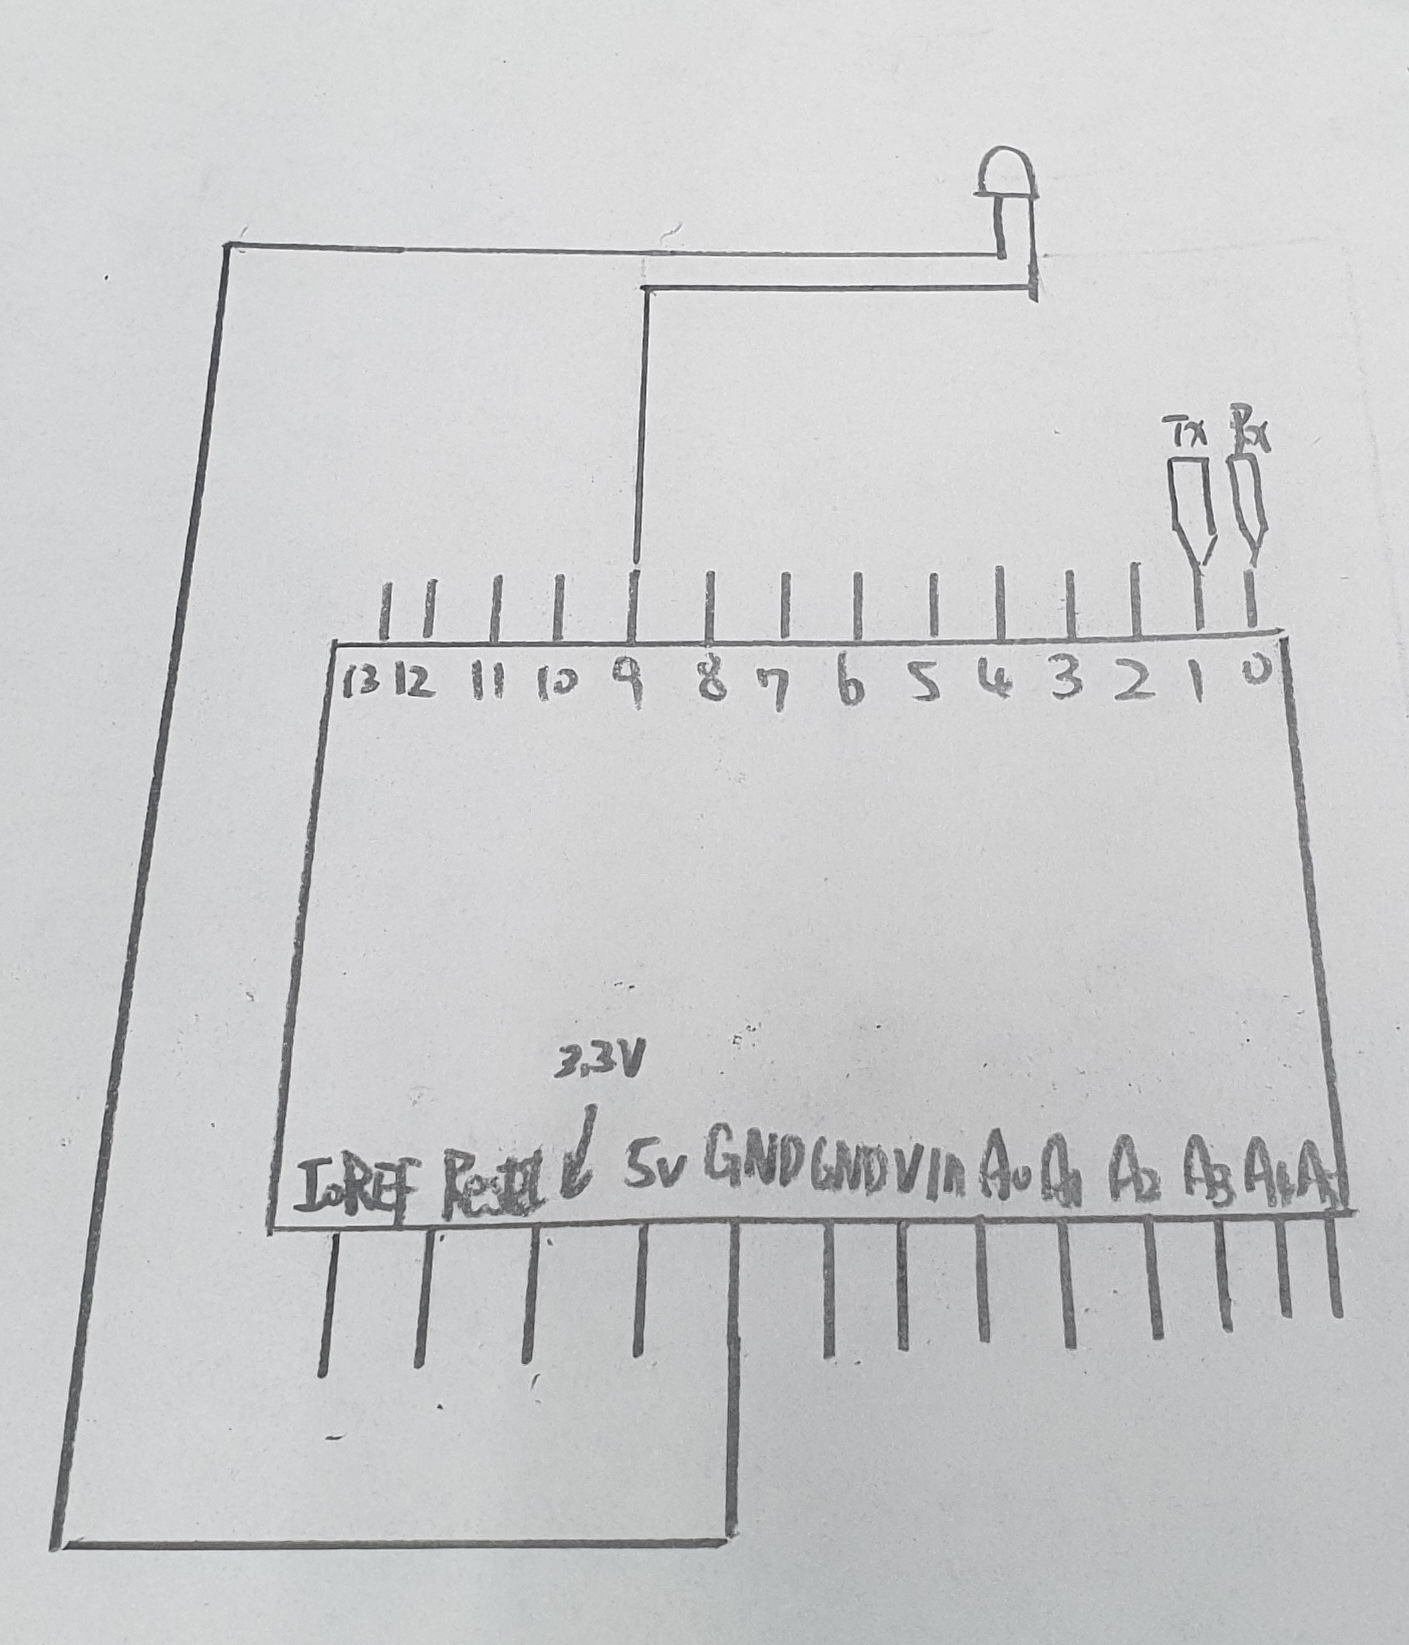 Tx Rx
13 12 11 10 9 8 7 6 5 4 3 2 1 0
3.3V
IoREF Reset 5v GND GND VIn A0 A1 A2 A3 A4 A5